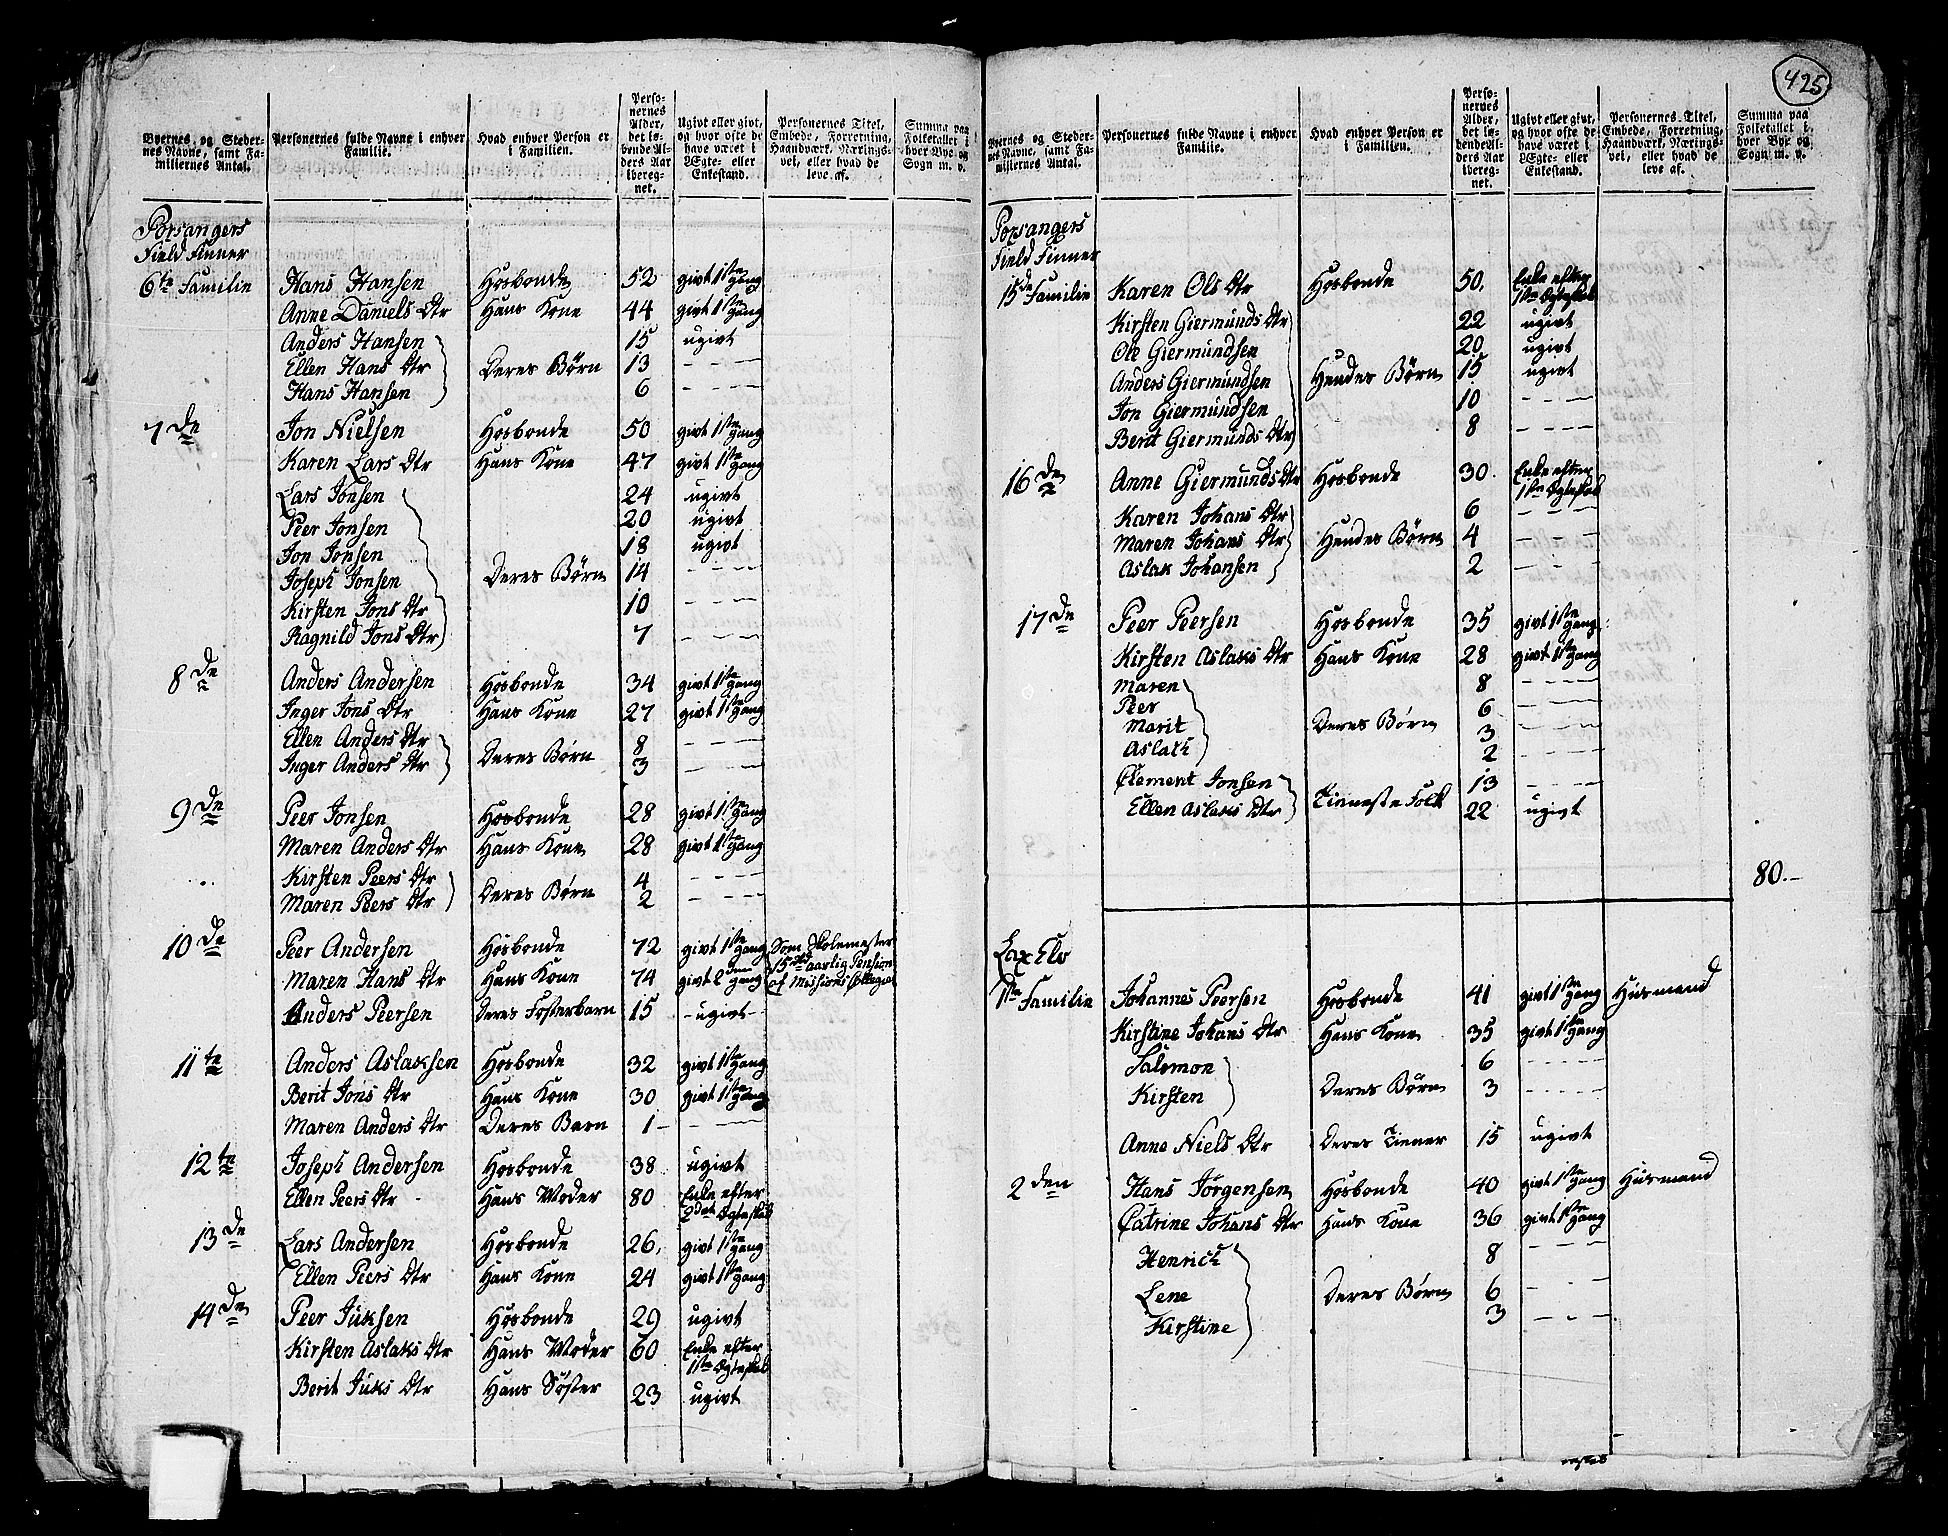 425
Byernes, og Stedernes Navne, samt Familiernes Antal. | Personernes fulde Navne i enhver Familie. | Hvad enhver Person er i Familien. | Personernes Alder, det løbende Alders Aar iberegnet. | Ugivt eller givt, og hvor ofte de have været i Ægte- eller Enkestand. | Personernes Titel, Embede, Forretning, Haandværk, Næringsvei, eller hvad de leve af. | Summa paa Folketallet i hver Bye og Sogn m. v.
Porsangers
Field Finner
6te Familie | Hans Hansen | Hosbonde | 52 | givt 1ste gang
Anne Daniels Dtr | Hans Kone | 44 | givt 1ste gang
Anders Hansen | 15 | ugivt
Ellen Hans Dtr | Deres Børn | 13 | - - -
Hans Hansen | 6 | - - -
7de | Jon Nielsen | Hosbonde | 50 | givt 1ste gang
Karen Lars Dtr | Hans Kone | 47 | givt 1ste gang
Lars Jonsen | 24 | ugivt
Peer Jonsen | 20 | ugivt
Jon Jonsen | 18 | ugivt
Joseph Jonsen | Deres Børn | 14 | - - -
Kirsten Jons Dtr | 10 | - - -
Ragnild Jons Dtr | 7 | - - -
8de | Anders Andersen | Hosbonde | 34 | givt 1ste gang
Inger Jons Dtr | Hans Kone | 27 | givt 1ste gang
Ellen Anders Dtr | Deres Børn | 8 | - - -
Inger Anders Dtr | 3 | - - -
9de | Peer Jonsen | Hosbonde | 28 | givt 1ste gang
Maren Anders Dtr | Hans Kone | 28 | givt 1ste gang
Kirsten Peers Dtr | Deres Børn | 4 | - - -
Maren Peers Dtr | 2 | - - -
10de | Peer Andersen | Hosbonde | 72 | givt 1ste gang | Som Skolemester
Maren Hans Dtr | Hans Kone | 74 | givt 2den gang | 15 aarlig Pension af Missions Collegiet
Anders Peersen | Deres Fosterbarn | 15 | - ugivt -
11te | Anders Aslaksen | Hosbonde | 32 | givt 1ste gang
Berit Jons Dtr | Hans Kone | 30 | givt 1ste gang
Maren Anders Dtr | Deres Barn | 1 | - - -
12te | Joseph Andersen | Hosbonde | 38 | ugivt
Ellen Peers Dtr | Hans Moder | 80 | Enke efter 2det Egteskab
13de | Lars Andersen | Hosbonde | 26, | givt 1ste gang
Ellen Peers Dtr | Hans Kone | 24 | givt 1ste gang
14de | Peer Juksen | Hosbonde | 29 | ugivt
Kirsten Aslaks Dtr | Hans Moder | 60 | Enke efter 1ste Egteskab
Berit Juks Dtr | Hans Søster | 23 | ugivt
Byernes og Stedernes Navne, samt Familiernes Antal. | Personernes fulde Navne i enhver Familie. | Hvad enhver Person er i Familien. | Personernes Alder, det løbende Alders Aar iberegnet. | Ugivt eller givt, og hvor ofte de have været i Ægte- eller Enkestand. | Personernes Titel, Embede, Forretning, Haandværk, Næringsvei, eller hvad de leve af. | Summa paa Folketallet i hver Bye og Sogn m. v.
Porsangers
Field Finner
15de Familie | Karen Ols Dtr | Hosbonde | 50, | Enke efter 1ste Egteskab
Kirsten Giermunds Dtr | 22 | ugivt
Ole Giermundsen | 20 | ugivt
Anders Giermundsen | Hendes Børn | 15 | ugivt
Jon Giermundsen | 10 | - - -
Berit Giermunds Dtr | 8 | - - -
16de | Anne Giermunds Dtr | Hosbonde | 30 | Enke efter 1ste Egteskab
Karen Johans Dtr | 6 | - - -
Maren Johans Dtr | Hendes Børn | 4 | - - -
Aslak Johansen | 2 | - - -
17de | Peer Peersen | Hosbonde | 35 | givt 1ste gang
Kirsten Aslaks Dtr | Hans Kone | 28 | givt 1ste gang
Maren | 8 | - - -
Peer | 6 | - - -
Marit | Deres Børn | 3 | - - -
Aslak | 2 | - - -
Clement Jonsen | Tieneste Folk | 13 | - - -
Ellen Aslaks Dtr | 22 | ugivt
80.-
Lax Elv
1ste Familie | Johannes Peersen | Hosbonde | 41 | givt 1ste gang | Husmand
Kirstine Johans Dtr | Hans Kone | 35 | givt 1ste gang
Salomon | 6 | - - -
Kirsten | Deres Børn | 3 | - - -
Anne Niels Dtr | Deres Tiener | 15 | ugivt
2den | Hans Jørgensen | Hosbonde | 40 | givt 1ste gang | Husmand
Catrine Johans Dtr | Hans Kone | 36 | givt 1ste gang
Henrich | 8 | - - -
Lene | Deres Børn | 6 | - - -
Kirstine | 3 | - - -